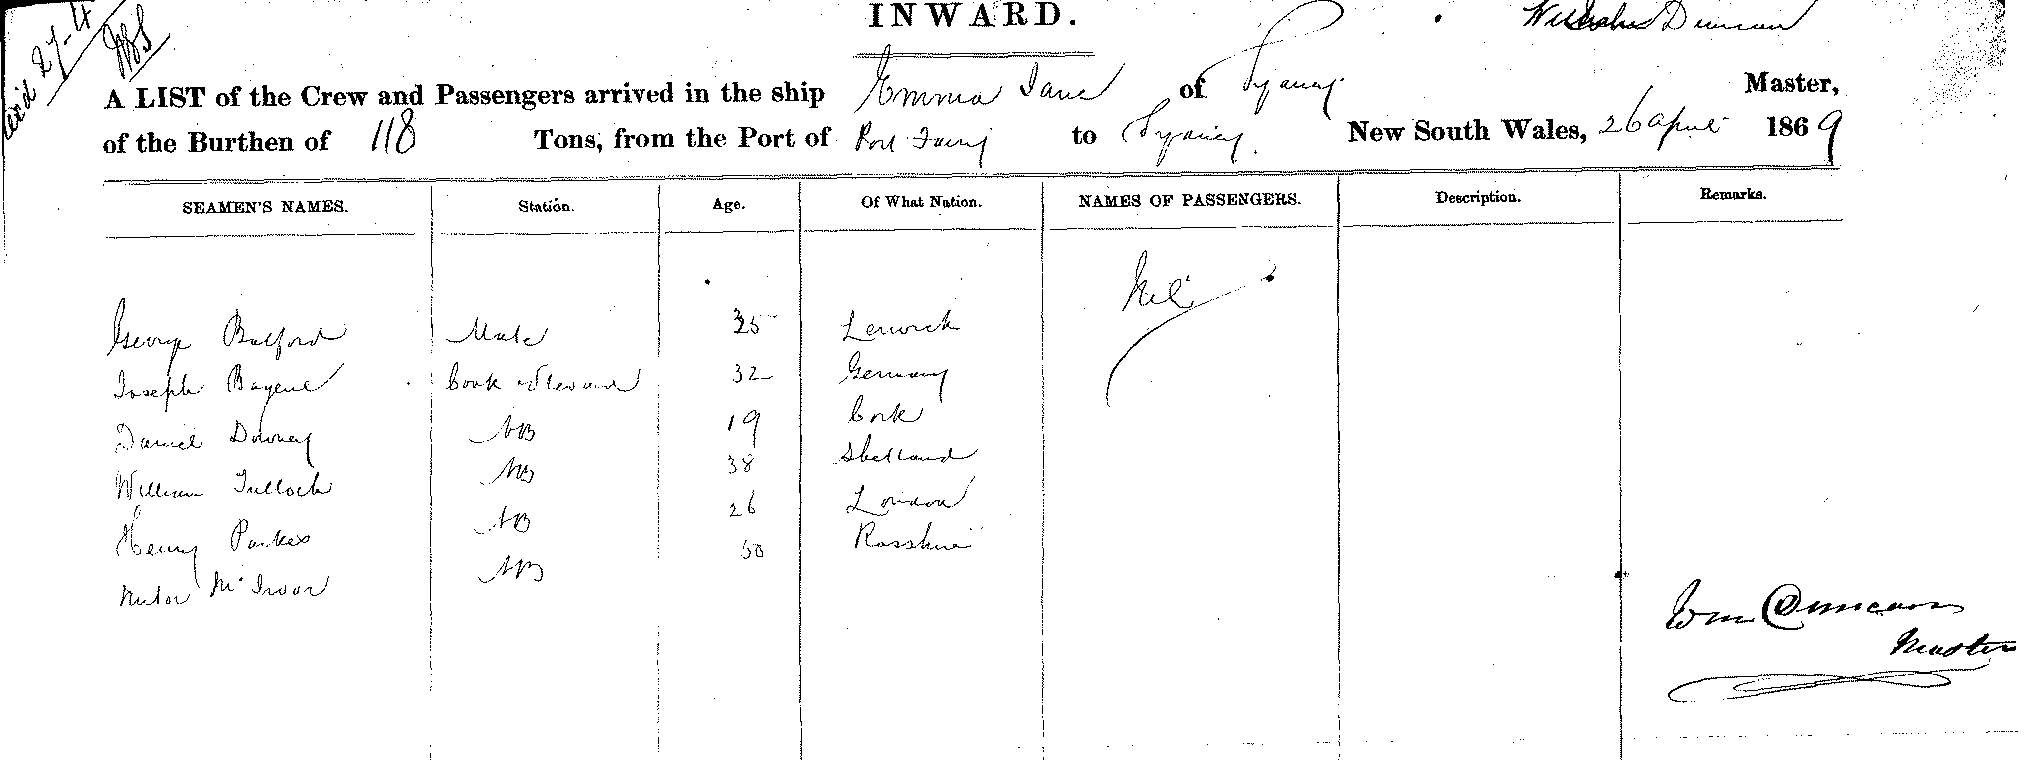 INWARD.
27-4
A LIST of the Crew and Passengers arrived in the ship Emma Jane of Sydney William Duncan Master,
of the Burthen of 118 Tons, from the Port of Port Fairy to Sydney. New South Wales, 26 April 1869
SEAMEN'S NAMES. Station. Age. Of What Nation. NAMES OF PASSENGERS. Description. Remarks.
Nil
George Balford Mate 35 Lerwick
Joseph Bayene Cook & Steward 32 Germany
Daniel Downey AB 19 Cork
William Tulloch AB 38 Shetland
Henry Parkes AB 26 London
McIvor AB 50 Rosshire
Wm Duncan
Master